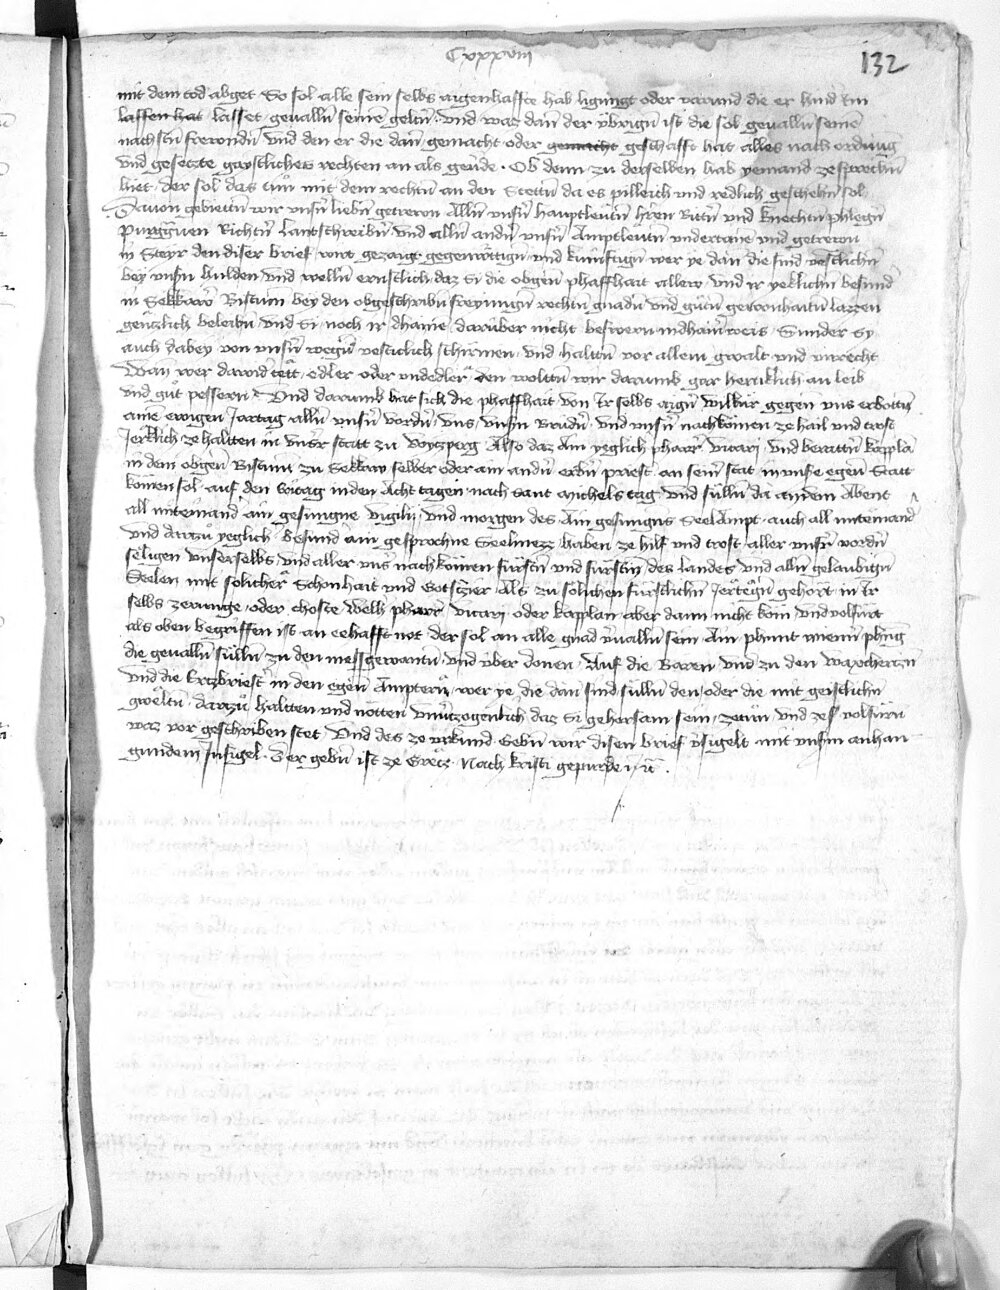 Cxxxviij
132
mit dem tod abget So sol alle sein selbs aigenhaffte hab ligungt oder varund die er hind im
lassen hat lasset geualln seine geltn vnd was dan der vbrign ist die sol geualln seine
nachstn frewndn vnd den er die dan gemacht oder gemacht geschafft hat alles nach ordnūg
vnd gesetzte gaystliches rechten an als geude Ob denn zu derselben hab yemand zesprechn
hiet der sol das tun mit dem rechtn an den Stettn da es pilleich vnd redlich geschehn sol
Dauon gebietn wir vnsn liebn getrewn Alln vnsn hauptleutn hren Rittn vnd knechtn phlegn
Purggrauen Richtn Lantschreibn vnd alln andn vnsn Amptleutn vndertane vnd getrewn
in Steyr den diser brief wirt gezaigt gegenwurtign vnd kunftign wer ye dan die sind vestclichn
bey vnsn hulden vnd welln ernstlich daz Si die obgen phaffhait aller vnd ir yeklichn besund
in Sekkaw Bistum bey den obgeschribn freyungn rechtn gnadn vnd gutn gewonhaitn lazzen
genczlich beleibn vnd Si noch ir dhaine daruber nicht beswern indhain weis Sunder Sy
auch dabey von vnsn wegn vesticlich schirmen vnd haltn vor allem gwalt vnd vnrecht
Wan wer dawid tett edler oder vnedler den woltn wir darumb gar hertiklich an leib
vnd gut pessern Vnd darumb hat sich die phaffhait von Ir selbs aign wilkur gegen vns erbottn
aine ewigen Jartag alln vnsn vordn vns vnsn Brudn vnd vnsn nachkomen ze hail vnd trost
Jerklich ze haltten in vnsr statt zu Voytzperg Also daz Ain yeglich pharr vicari vnd beratn kappla
in dem obgen Bistum zu Sekkaw selber oder ain andn erbn priest an sein stat in vnse egen Statt
komen sol auf den Suntag in den Acht tagen nach sant Michels tag vnd sulln da an dem Abent
all miteinand ain gesungne vigilij vnd morgen des Ain gesungns SeelAmpt auch all miteinand
vnd darzu yeglich besund ain gesprochne Seelmezz haben ze hilf vnd trost aller vnsn vordn
seligen vnserselbs vnd aller vns nachkomen furstn vnd furstin des landes vnd alln gelaubign
Seelen mit solicher Schonhait vnd Gotszier Als zu solichen furstlichn Jertegn gehort in Ir
selbs zerunge oder choste Welh pharr vicari oder kapplan aber dann nicht kom vnd volfurt
als oben begriffen ist an eehafft not der sol an alle gnad vualln sein Ain phunt wienn phnig
die geualln sulln zu den messgewantn vnd vber donen Auf die Baren vnd zu den waxchertzn
vnd die Ertzbriest in den egen Amptern wer ye die dan sind sulln den oder die mit geistlichn
gwaltn darzu haltten vnd notten vnuczogenlich daz Si gehorsam sein zetun vnd zeh volfurn
waz vor geschriben stet Vnd des ze vrkund Gebn wir disen brief vsigelt mit vnsm anhan
gundem Insigel Der gebn ist ze Grecz Nach kristi gepurde